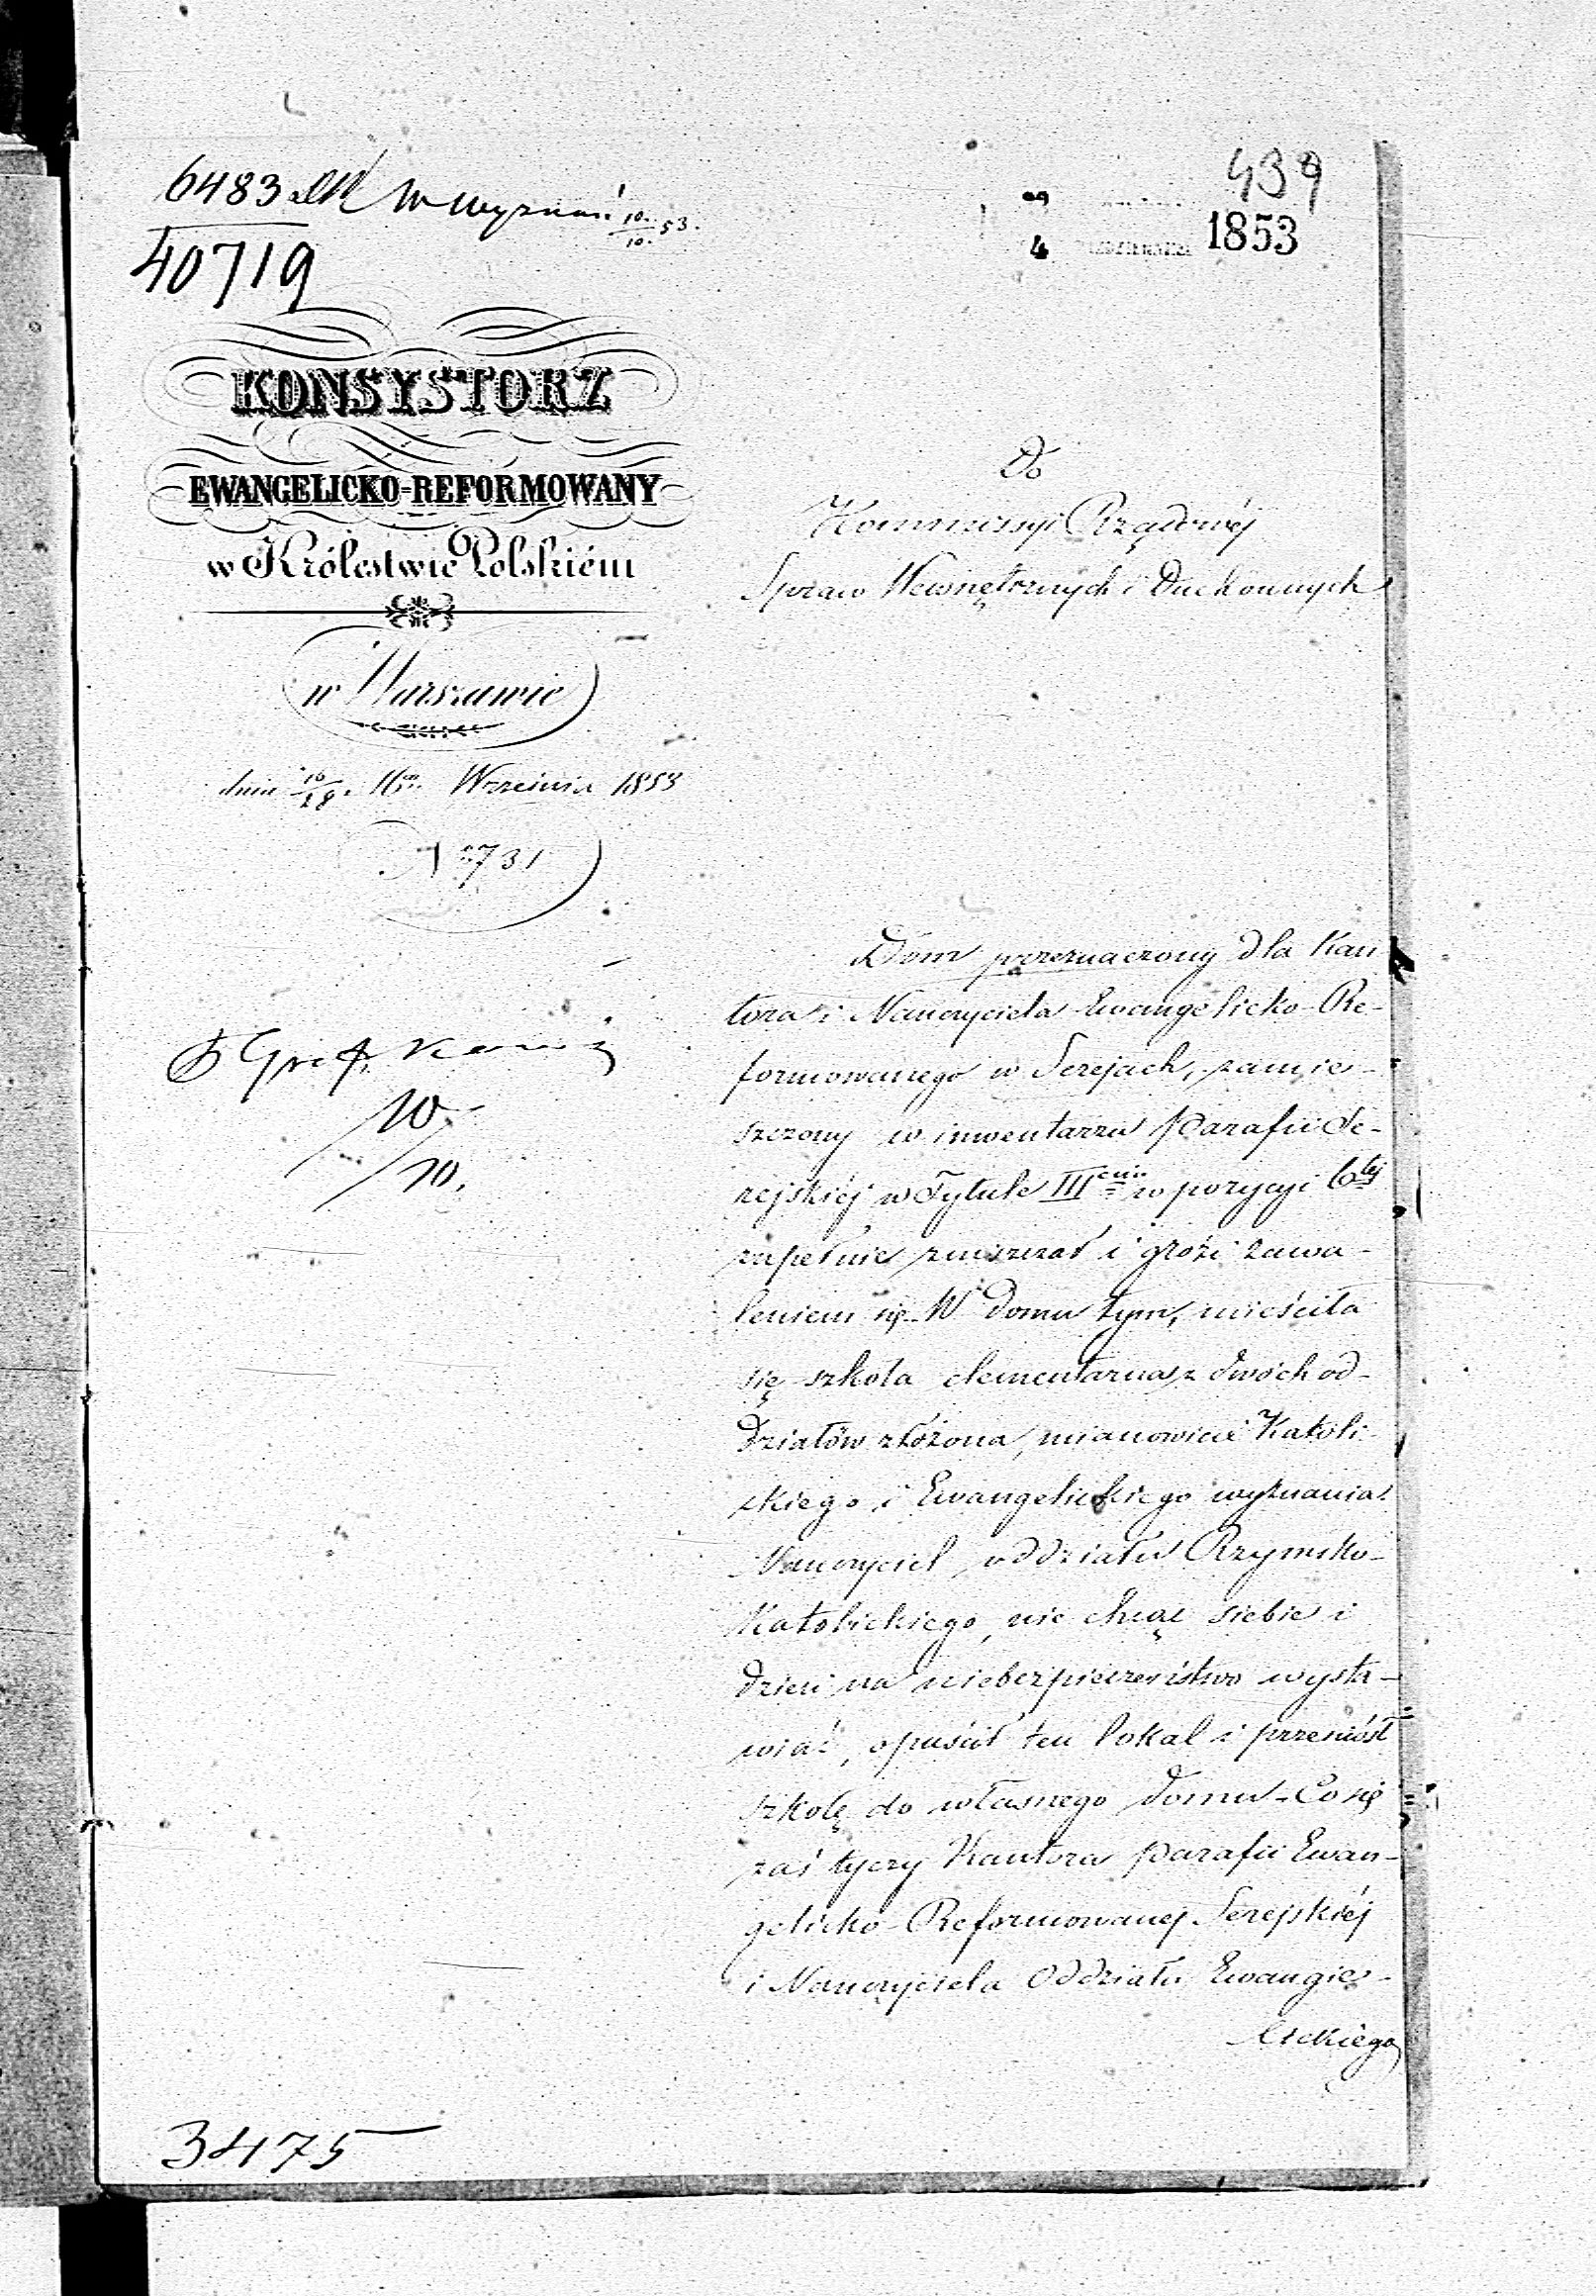 439
6483 W Wyznań 10/10 53.
40719
4 1853
KONSYSTORZ
EWANGELICKO-REFORMOWANY
w Królestwie Polskiém
w Warszawie
dnia 16/28 Września 1853
No 731
Do
Kommissyi Rządowéj
Spraw Wewnętrznych i Duchownych
10
/10.
Dom przeznaczony dla Kan
tora i Nauczyciela Ewangelicko-Re-
formowanego w Serejach, zamie-
szczony w inwentarzu Parafii Se-
rejskiéj w Tytule III cim w pozycyi 6 téj
zupełnie zniszczał i grozi zawa-
leniem się. W domu tym, mieściła
się szkoła elementarna z dwóch od-
działów złożona, mianowicie Katoli-
ckiego i Ewangelickiego wyznania.
Nauczyciel oddziału Rzymsko-
Katolickiego, nie chcąc siebie i
dzieci na niebezpieczeństwo wysta-
wiać, opuścił ten lokal i przeniósł
szkołę do własnego domu - Co się
zaś tyczy Kantora parafii Ewan-
gelicko-Reformowanej Serejskiéj
i Nauczyciela Oddziału Ewangie-
lickiego
3475